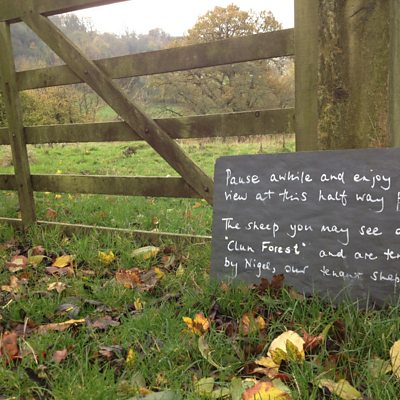 Pause awhile and enjoy
view at this half way
The sheep you may see
"Clun Forest" and are
by Nigel, our tenant